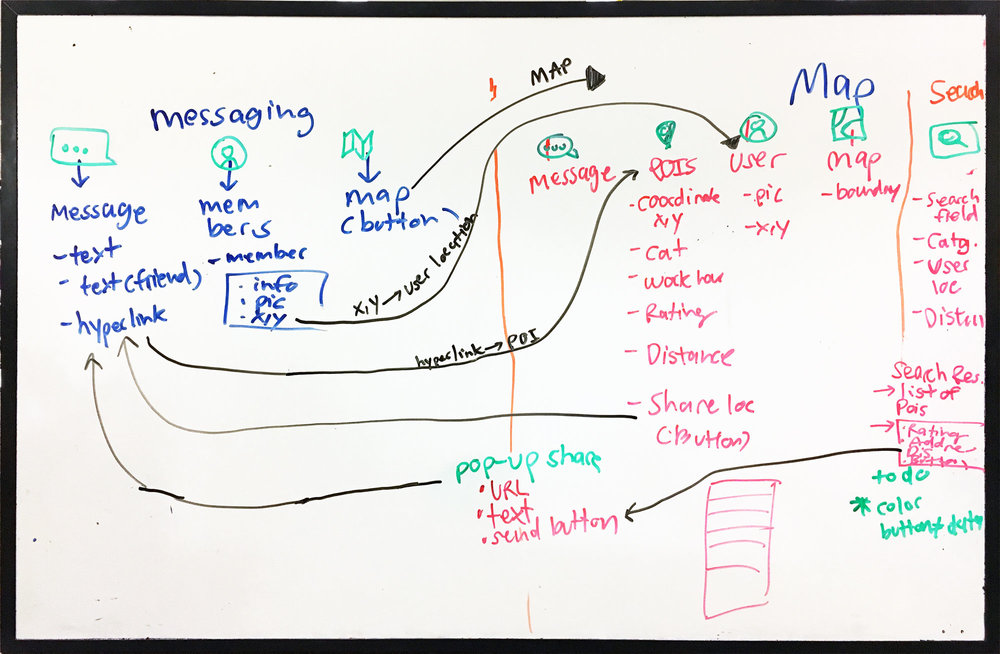 messaging
Message
- text
- text (friend)
- hyperlink
mem
bers
- member
· info
· pic
· x,y
map
(button)
MAP
x,y → user location
hyperlink → POI
Map
Message
POIS
- coordinate
x,y
- Cat
- work hou
- Rating
- Distance
- Share loc
(Button)
User
- pic
- x,y
map
- boundary
Search
- Search
field
- Catg.
- User
loc
- Distan
Search Res.
→ list of
Pois
→ · Rating
· Addre
· Dis
· Button
to do
* color
button + data
pop-up share
· URL
· text
· send button